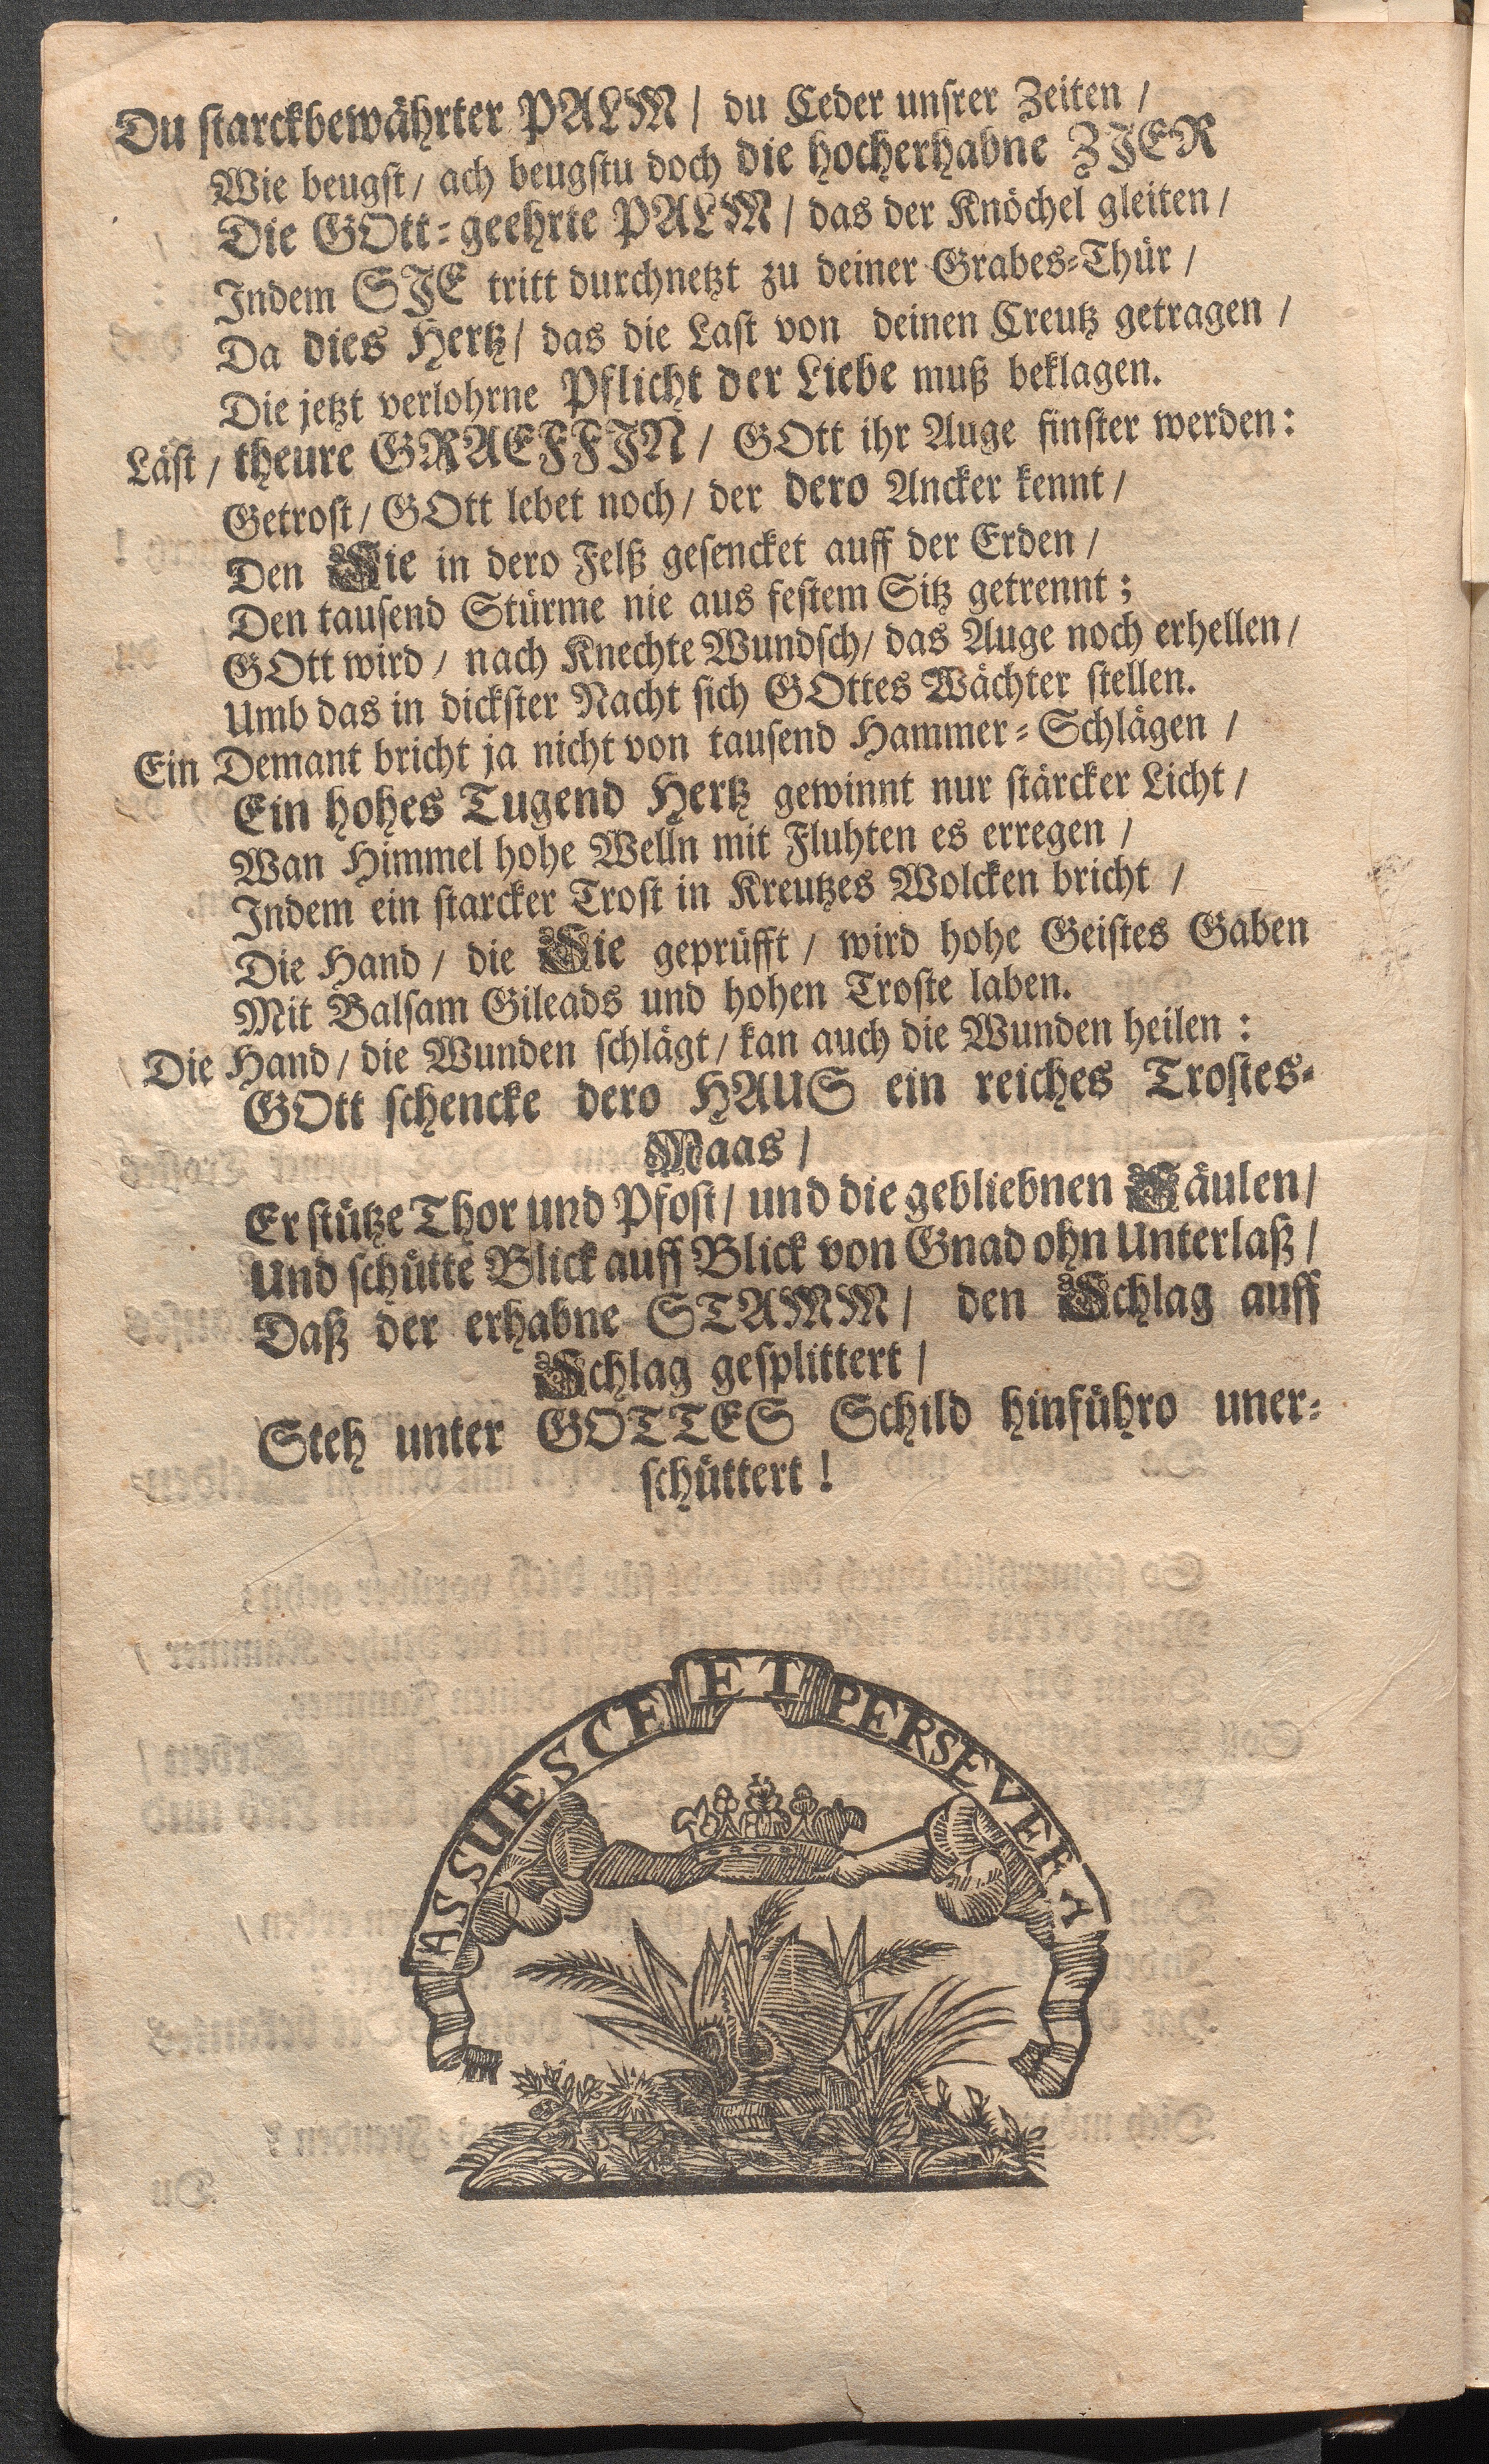 Du starckbewährter PALM / du Ceder unsrer Zeiten /
Wie beugst / ach beugstu doch die hocherhabne ZJER
Die GOtt-geehrte PALM / das der Knöchel gleiten /
Jndem SJE tritt durchnetzt zu deiner Grabes-Thür /
Da dies Hertz / das die Last von deinen Creutz getragen /
Die jetzt verlohrne Pflicht der Liebe muß beklagen.
Läst / theure GRAEFFJN / GOtt ihr Auge finster werden:
Getrost / GOtt lebet noch / der dero Ancker kennt /
Den Sie in dero Felß gesencket auff der Erden /
Den tausend Stürme nie aus festem Sitz getrennt;
GOtt wird / nach Knechte Wundsch / das Auge noch erhellen /
Umb das in dickster Nacht sich GOttes Wächter stellen.
Ein Demant bricht ja nicht von tausend Hammer-Schlägen /
Ein hohes Tugend Hertz gewinnt nur stärcker Licht /
Wan Himmel hohe Welln mit Fluhten es erregen /
Jndem ein starcker Trost in Kreutzes Wolcken bricht /
Die Hand / die Sie geprüfft / wird hohe Geistes Gaben
Mit Balsam Gileads und hohen Troste laben.
Die Hand / die Wunden schlägt / kan auch die Wunden heilen:
GOtt schencke dero HAUS ein reiches Trostes-
Maas /
Er stütze Thor und Pfost / und die gebliebnen Säulen /
Und schütte Blick auff Blick von Gnad ohn Unterlaß /
Daß der erhabne STAMM / den Schlag auff
Schlag gesplittert /
Steh unter GOTTES Schild hinführo uner-
schüttert!
ASSUESCE ET PERSEVERA